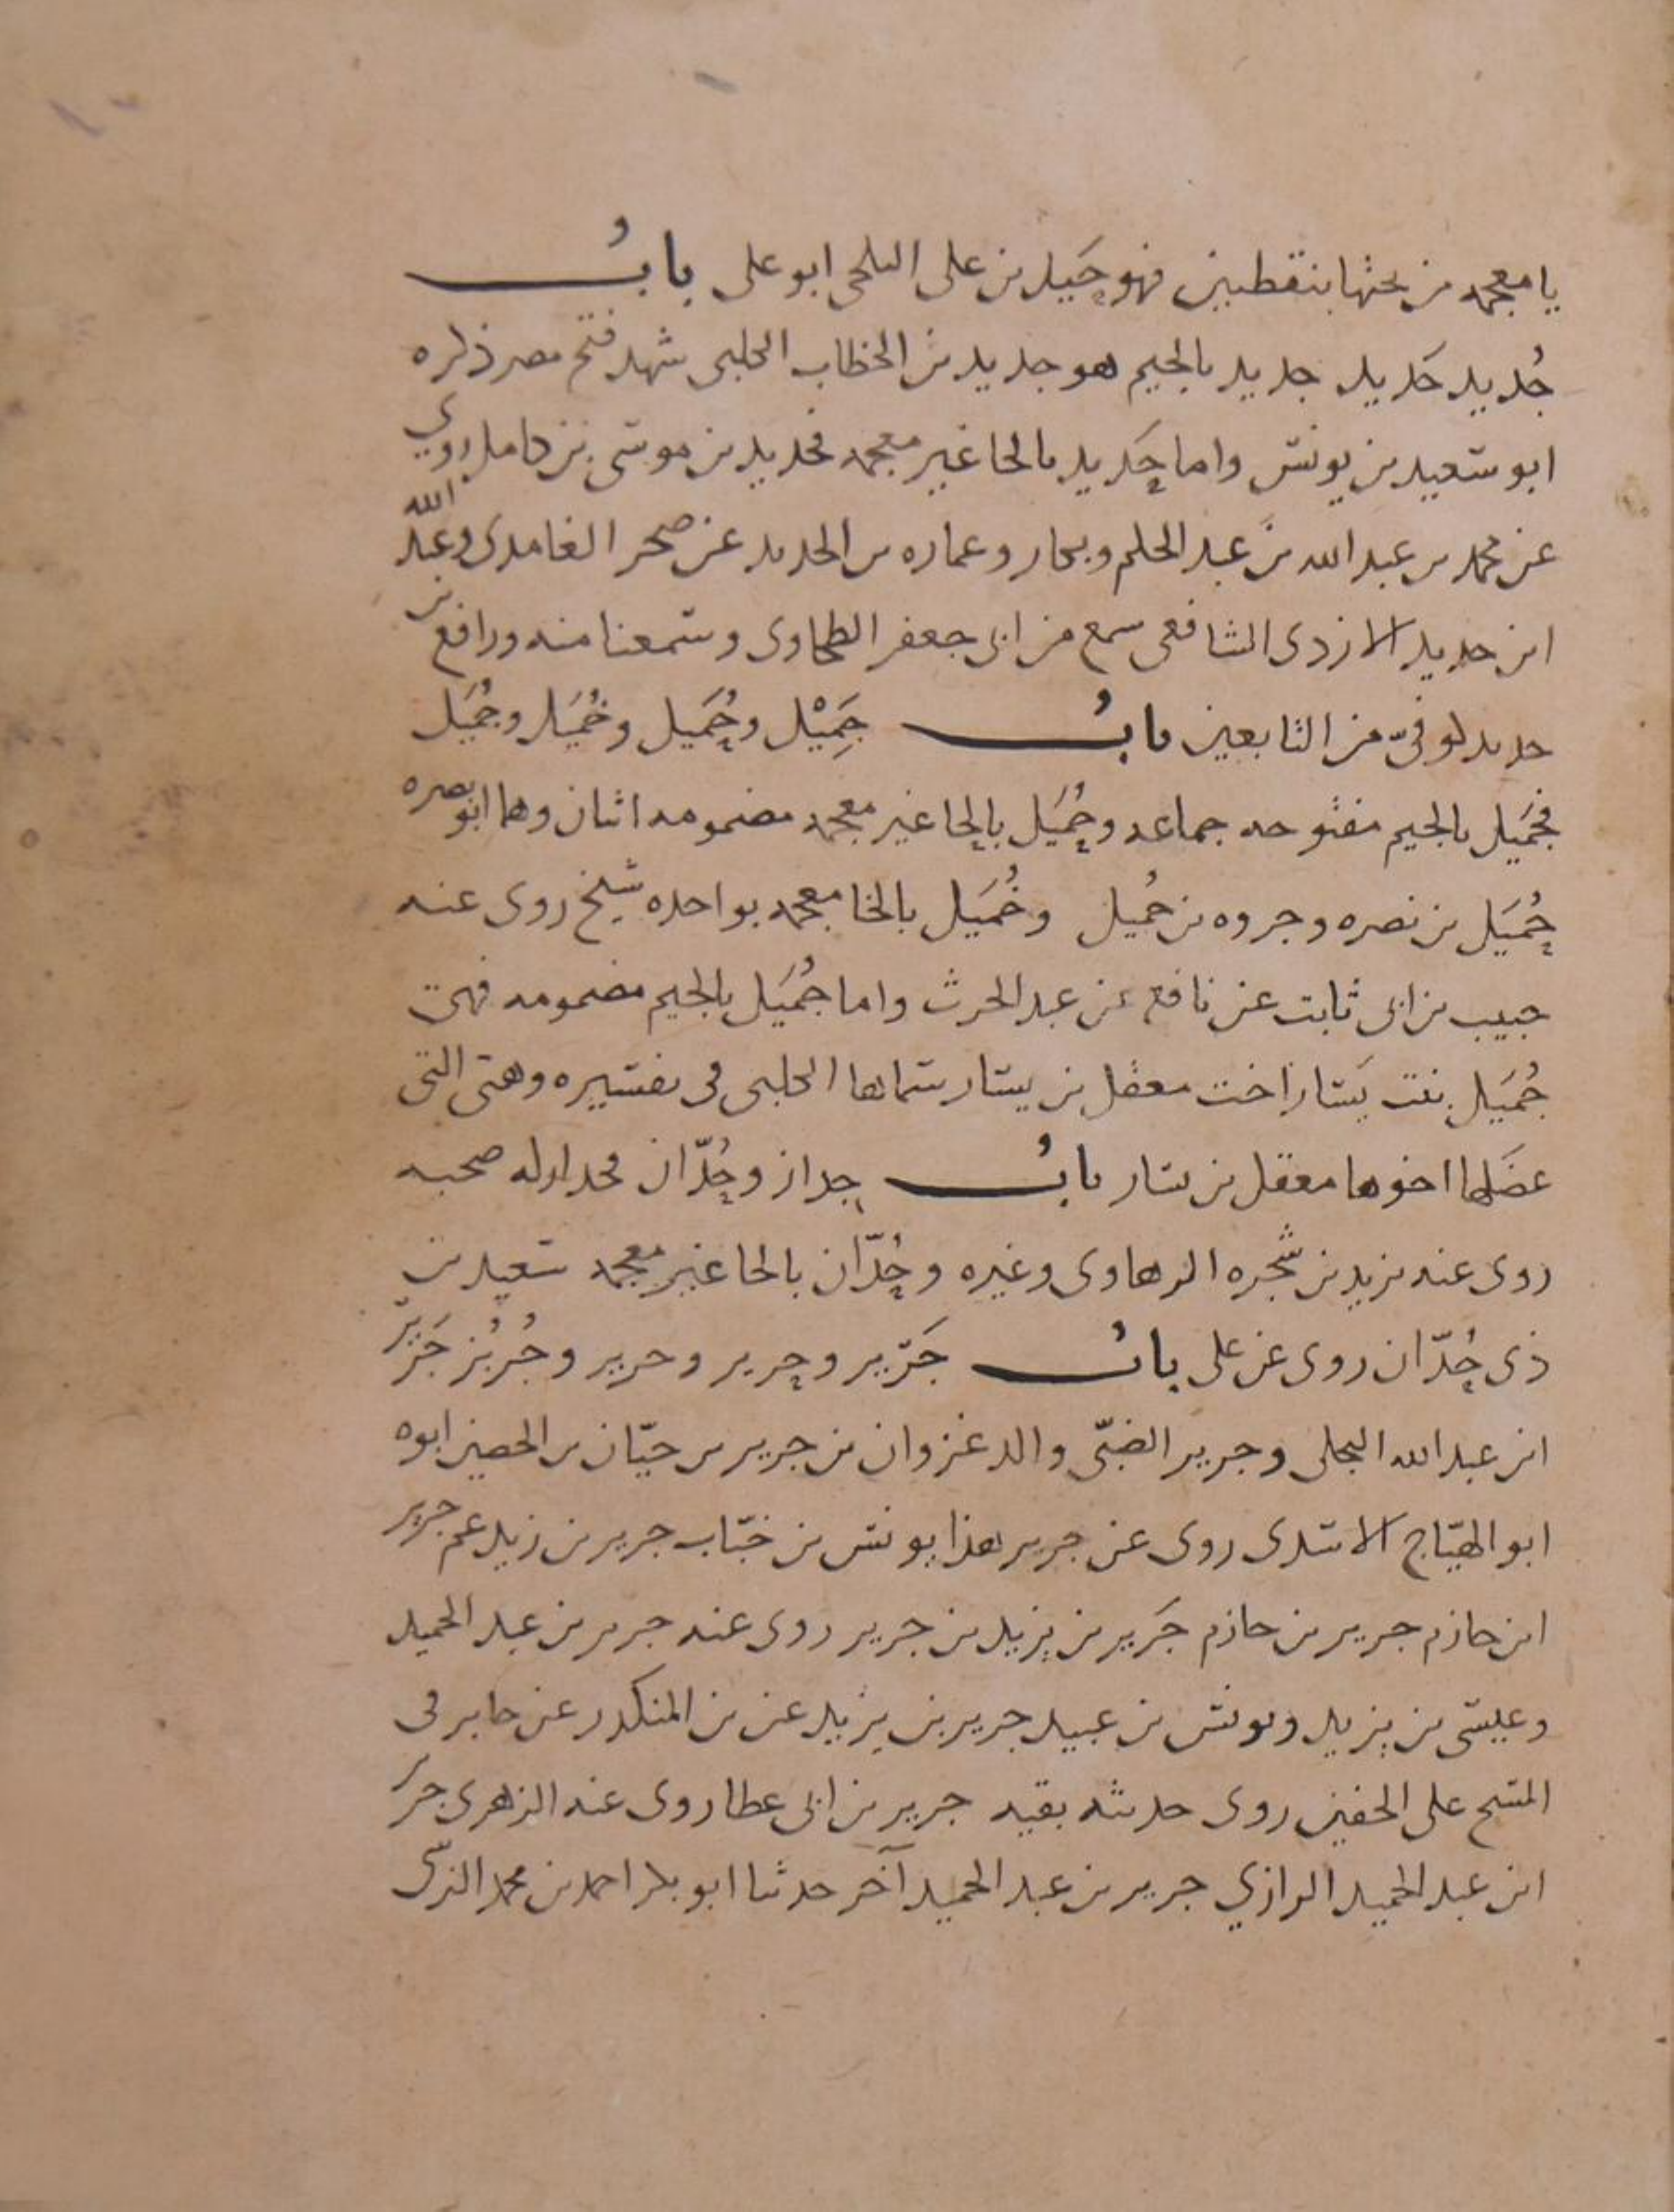 يا معجمه من تحتها بنقطين فهو حَيِد بن على البلخى ابو على بابُ
جُديد حَديد جديد بالجيم هو جديد بن الخطاب الكلبى شهد فتح مصر ذكره
ابو سعيد بن يونس واما حَديد بالحا غير معجمه فحديد بن موسى بن كامل روي
عن محمد بن عبد الله بن عبد الحكم وبحار وعماره بن الحديد عن صخر الغامدى وعبد الله
ابن حديد الازدى الشافعى سمع من ابى جعفر الطحاوى وسمعنا منه ورافع بن
حديد كوفىّ من التابعين بابُ جَمِيْل وحُمَيل وخُمَيل وجُمَيل
فجَمَيل بالجيم مفتوحه جماعه وحُمَيل بالحا غير معجمه مضمومه اثنان وهما ابو بصره
حُمَيَل بن نصره وجروه بن حُميل وخُمَيل بالخا معجمه بواحده شيخ روى عنه
حبيب بن ابى ثابت عن نافع بن عبد الحرث واما جُمَيَل بالجيم مضمومه فهى
جُمَيَل بنت يَسَار اخت معقل بن يسار سماها الكلبى فى تفسيره وهى التى
عضَلها اخوها معقل بن يسار بابُ جدار وحُدّان فجدار له صحبه
روى عنه يزيد بن شجره الرهاوى وغيره وحُدّان بالحا غير معجمه سعيد بن
ذى حُدّان روى عن على بابُ جَرير وحرير وحرير وجُرُبُز جَرير
ابن عبد الله البجلى وجرير الضبّى والد غزوان بن جرير بن حيّان بن الحصين ابوه
ابو الهيّاج الاسدى روى عن جرير هذا يونس بن خبّاب جرير بن زيد عم جرير
ابن حازم جرير بن حازم جَرير بن يزيد بن جرير روى عنه جرير بن عبد الحميد
وعيسى بن يزيد ويونس بن عبيد جرير بن يزيد عن بن المنكدر عن جابر فى
المسح على الخفين روى حديثه بقيه جرير بن ابى عطا روى عنه الزهرى جرير
ابن عبد الحميد الرازي جرير بن عبد الحميد آخر حدثنا ابو بكر احمد بن محمد